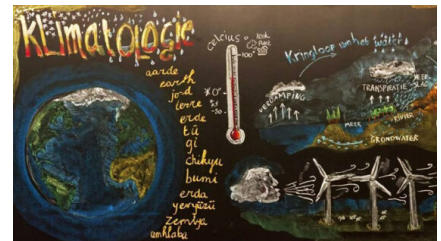 Klimatologie
aarde
earth
jord
terre
erde
tū
gi
chikyu
bumi
erda
yeryüzü
Zemlya
umhlaba
Celcius°
100°
0°
-50°
Kringloop van het water
VERDAMPING
TRANSPIRATIE
NEER-
SLAG
MEER
RIVIER
GRONDWATER